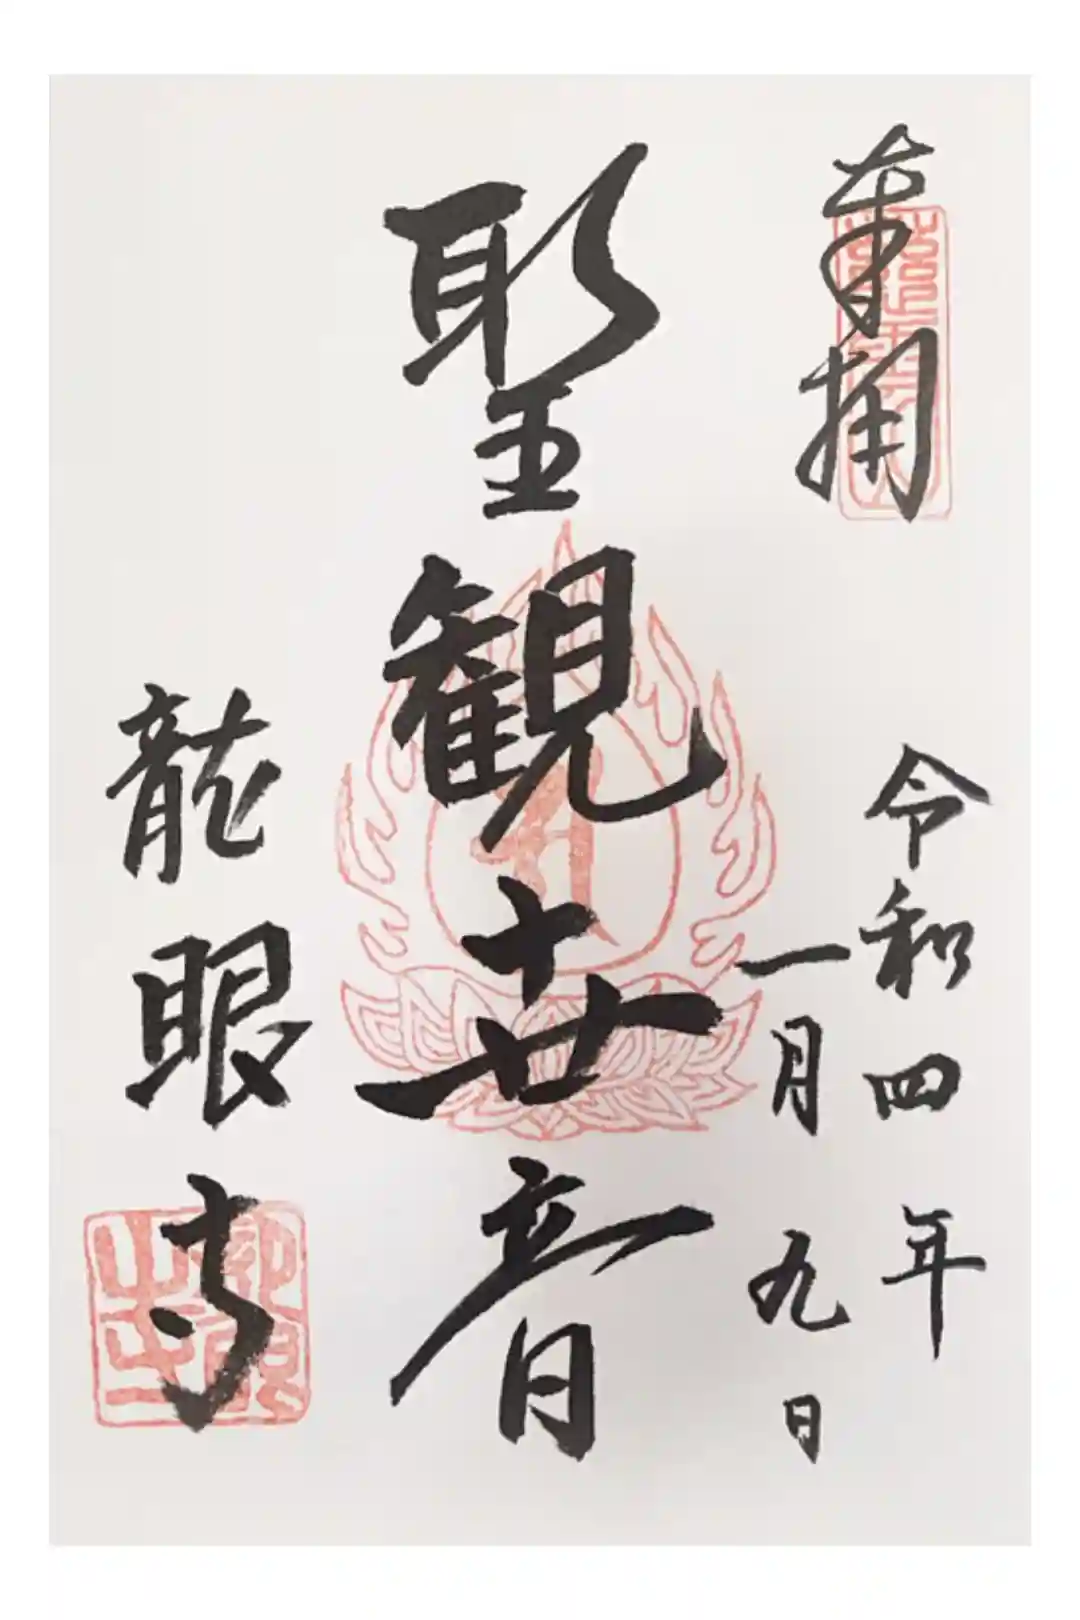 奉拝
令和四年
一月九日
聖観世音
龍眼寺